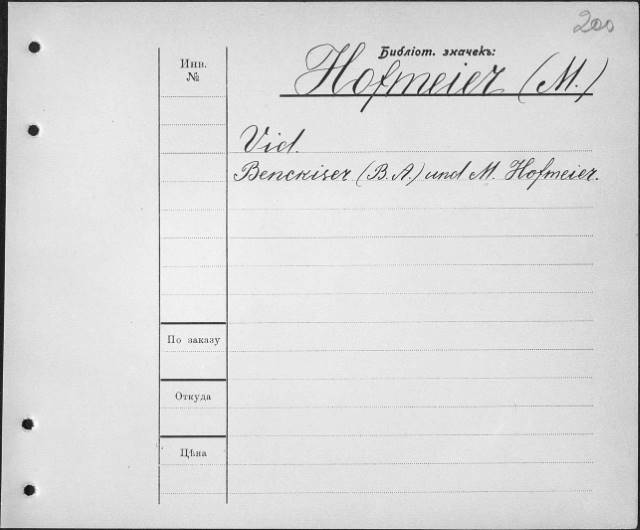 200
Библіот. значекъ:
Инв.
№
Hofmeier (M.)
Vid.
Benckiser (B. A.) und M. Hofmeier.
По заказу
Откуда
Цѣна